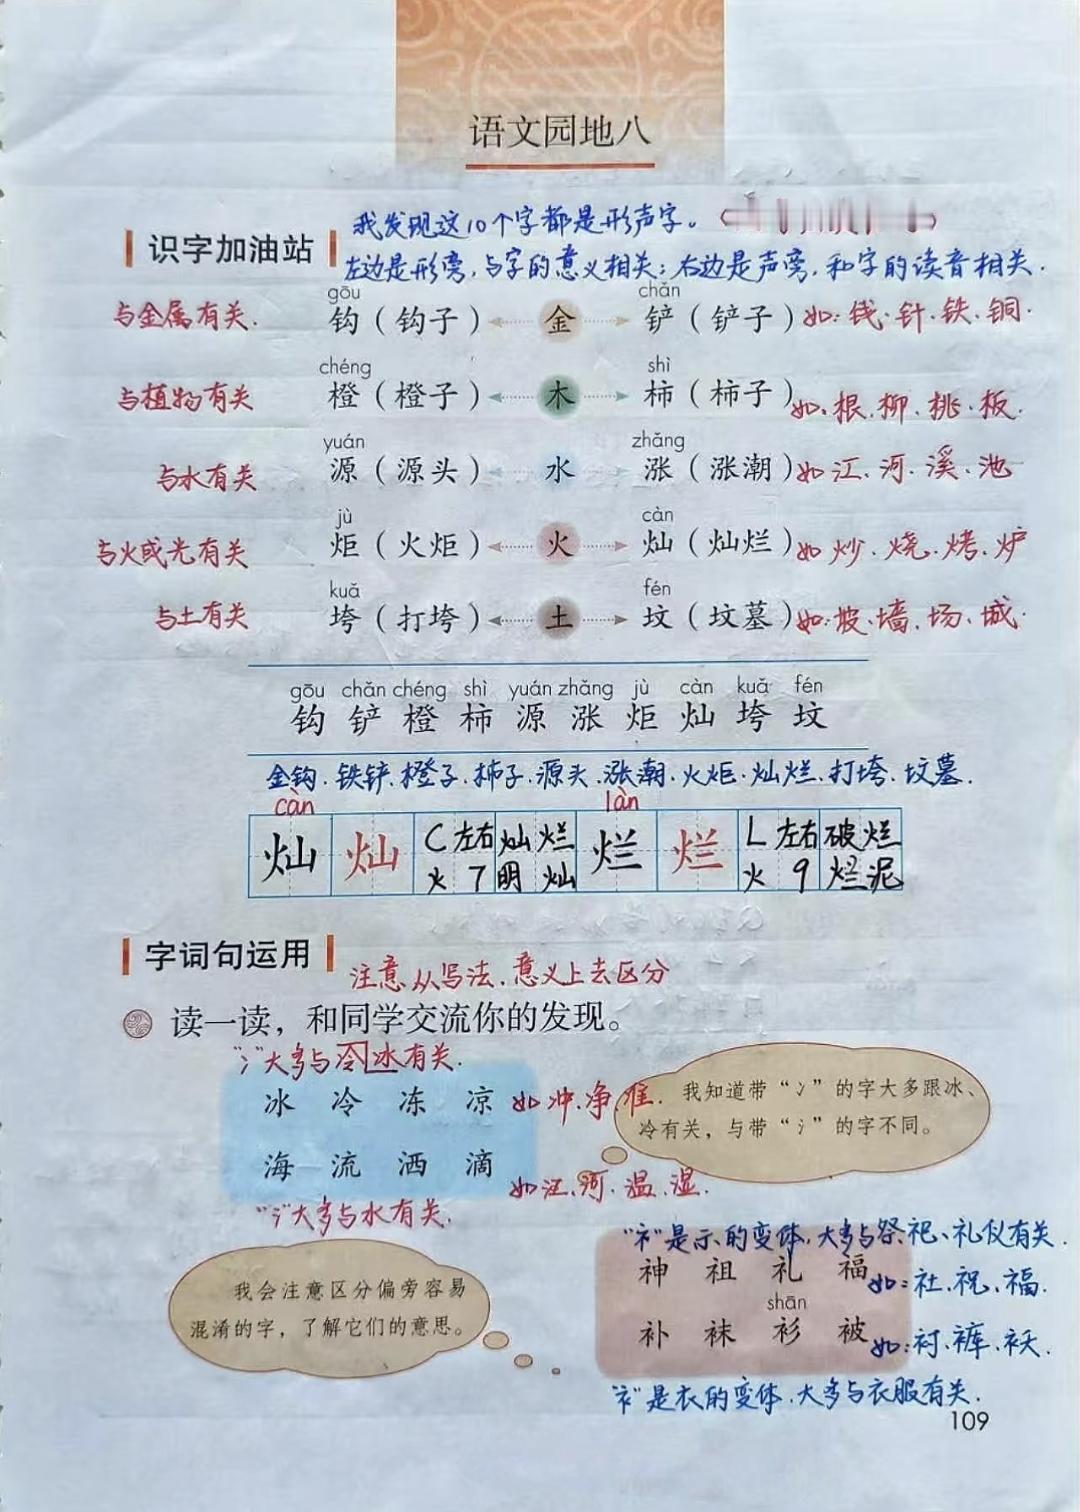 语文园地八
我发现这10个字都是形声字。
识字加油站
左边是形旁,与字的意义相关;右边是声旁,和字的读音相关.
gōu chǎn
与金属有关. 钩(钩子) 金 铲(铲子) 如:钱.针.铁.铜.
chéng shì
与植物有关 橙(橙子) 木 柿(柿子) 如.根.柳.桃.板.
yuán zhǎng
与水有关 源(源头) 水 涨(涨潮) 如江.河.溪.池
jù càn
与火或光有关 炬(火炬) 火 灿(灿烂) 如炒.烧.烤.炉
kuǎ fén
与土有关 垮(打垮) 土 坟(坟墓) 如:坡、墙.场.城.
gōu chǎn chéng shì yuán zhǎng jù càn kuǎ fén
钩 铲 橙 柿 源 涨 炬 灿 垮 坟
金钩.铁铲.橙子.柿子.源头.涨潮.火炬.灿烂.打垮.坟墓.
càn làn
灿 灿 C 左右 灿烂 烂 烂 L 左右 破烂
火 7 明灿 火 9 烂泥
字词句运用
注意从写法.意义上去区分
读一读，和同学交流你的发现。
"冫"大多与冷冰有关.
冰 冷 冻 凉 如冲.净.准.
我知道带“冫”的字大多跟冰、
冷有关，与带“氵”的字不同。
海 流 洒 滴 如江.河.温.湿.
"氵"大多与水有关.
"礻"是示的变体,大多与祭祀、礼仪有关.
神 祖 礼 福 如:社.祝、福.
我会注意区分偏旁容易
混淆的字，了解它们的意思。
shān
补 袜 衫 被 如:衬.裤.袄.
"衤"是衣的变体.大多与衣服有关.
109